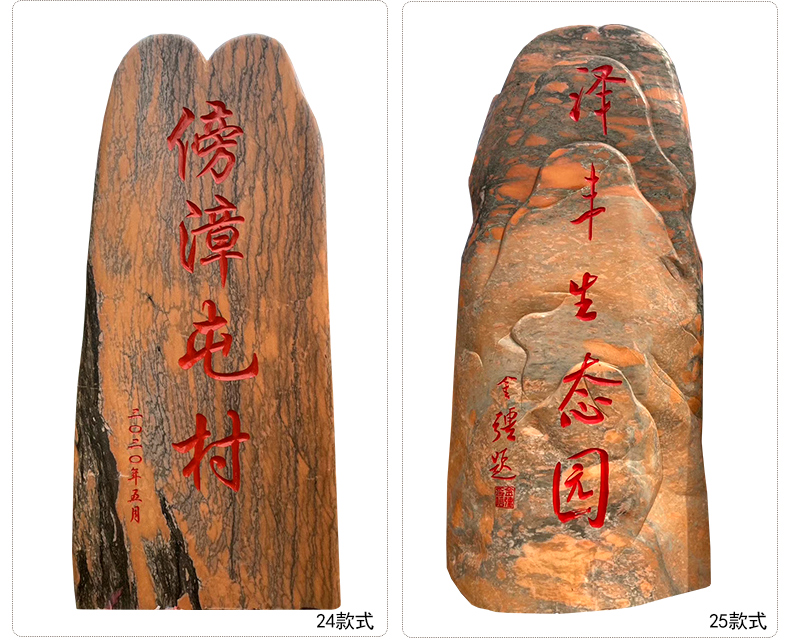 傍漳屯村
二〇二〇年五月
24款式
泽丰生态园
金疆题
25款式